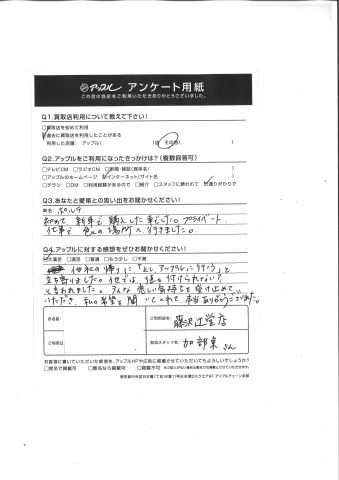 アップル アンケート用紙
この度は当店をご利用いただきありがとうございました。
Q1.買取店利用について教えて下さい!
□買取店を初めて利用
□過去に買取店を利用したことがある
利用した店舗: アップル( 店・その他)
Q2.アップルをご利用になったきっかけは?(複数回答可)
□テレビCM □ラジオCM □新聞・雑誌(媒体名/ )
□アップルのホームページ □インターネット(サイト名 )
□チラシ □DM □利用経験があるので □紹介 □スタッフに誘われて □通りがかりで
Q3.あなたと愛車との思い出をお聞かせください!
車名:ポルテ
初めて新車で購入した車でした。プライベート、
仕事で 色々な場所へ行きました。
Q4.アップルに対する感想をぜひお聞かせください!
□大満足 □満足 □普通 □もう少し □不満
他社の帰りに「よし、アップルに行こう」と
立ち寄りました。他では、値は付けられない?
と言われました。そんな悲しい気持ちを受け止めて
いただき、私の希望を聞いてくれて、本当ありがとうございました。
お名前:
ご利用店名: 藤沢辻堂店
ご利用日
担当スタッフ名: 加部東さん
お客様に書いていただいた感想を、アップルHPや広告に掲載させていただいてもよろしいでしょうか?
□実名で掲載可 □匿名なら掲載可 □掲載不可